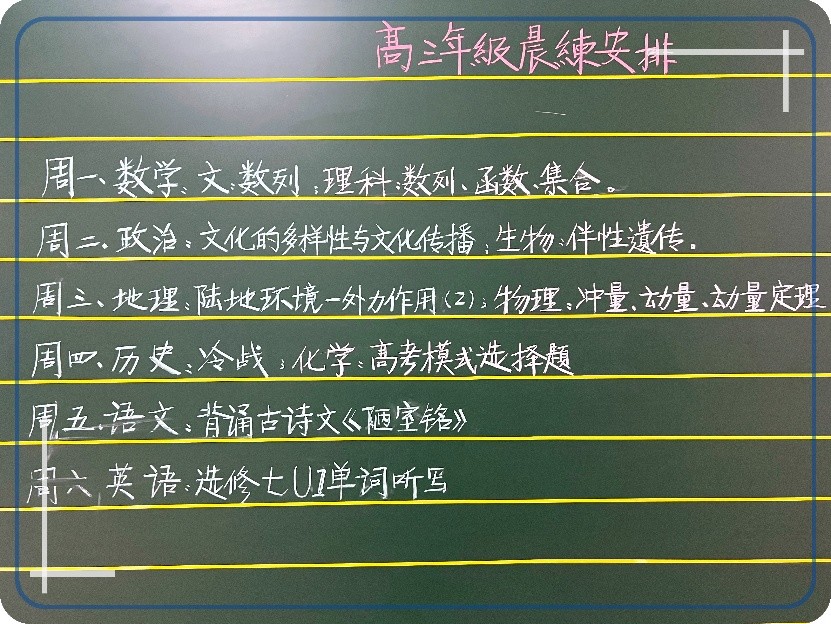 高三年级晨練安排
周一、数学：文：数列；理科：数列、函数、集合。
周二、政治：文化的多样性与文化传播；生物：伴性遺传.
周三、地理：陆地环境一外力作用(2)；物理：冲量、动量、动量定理
周四、历史：冷战；化学：高考模式选择题
周五、语文：背诵古诗文《陋室铭》
周六、英语：选修七U1单词听写